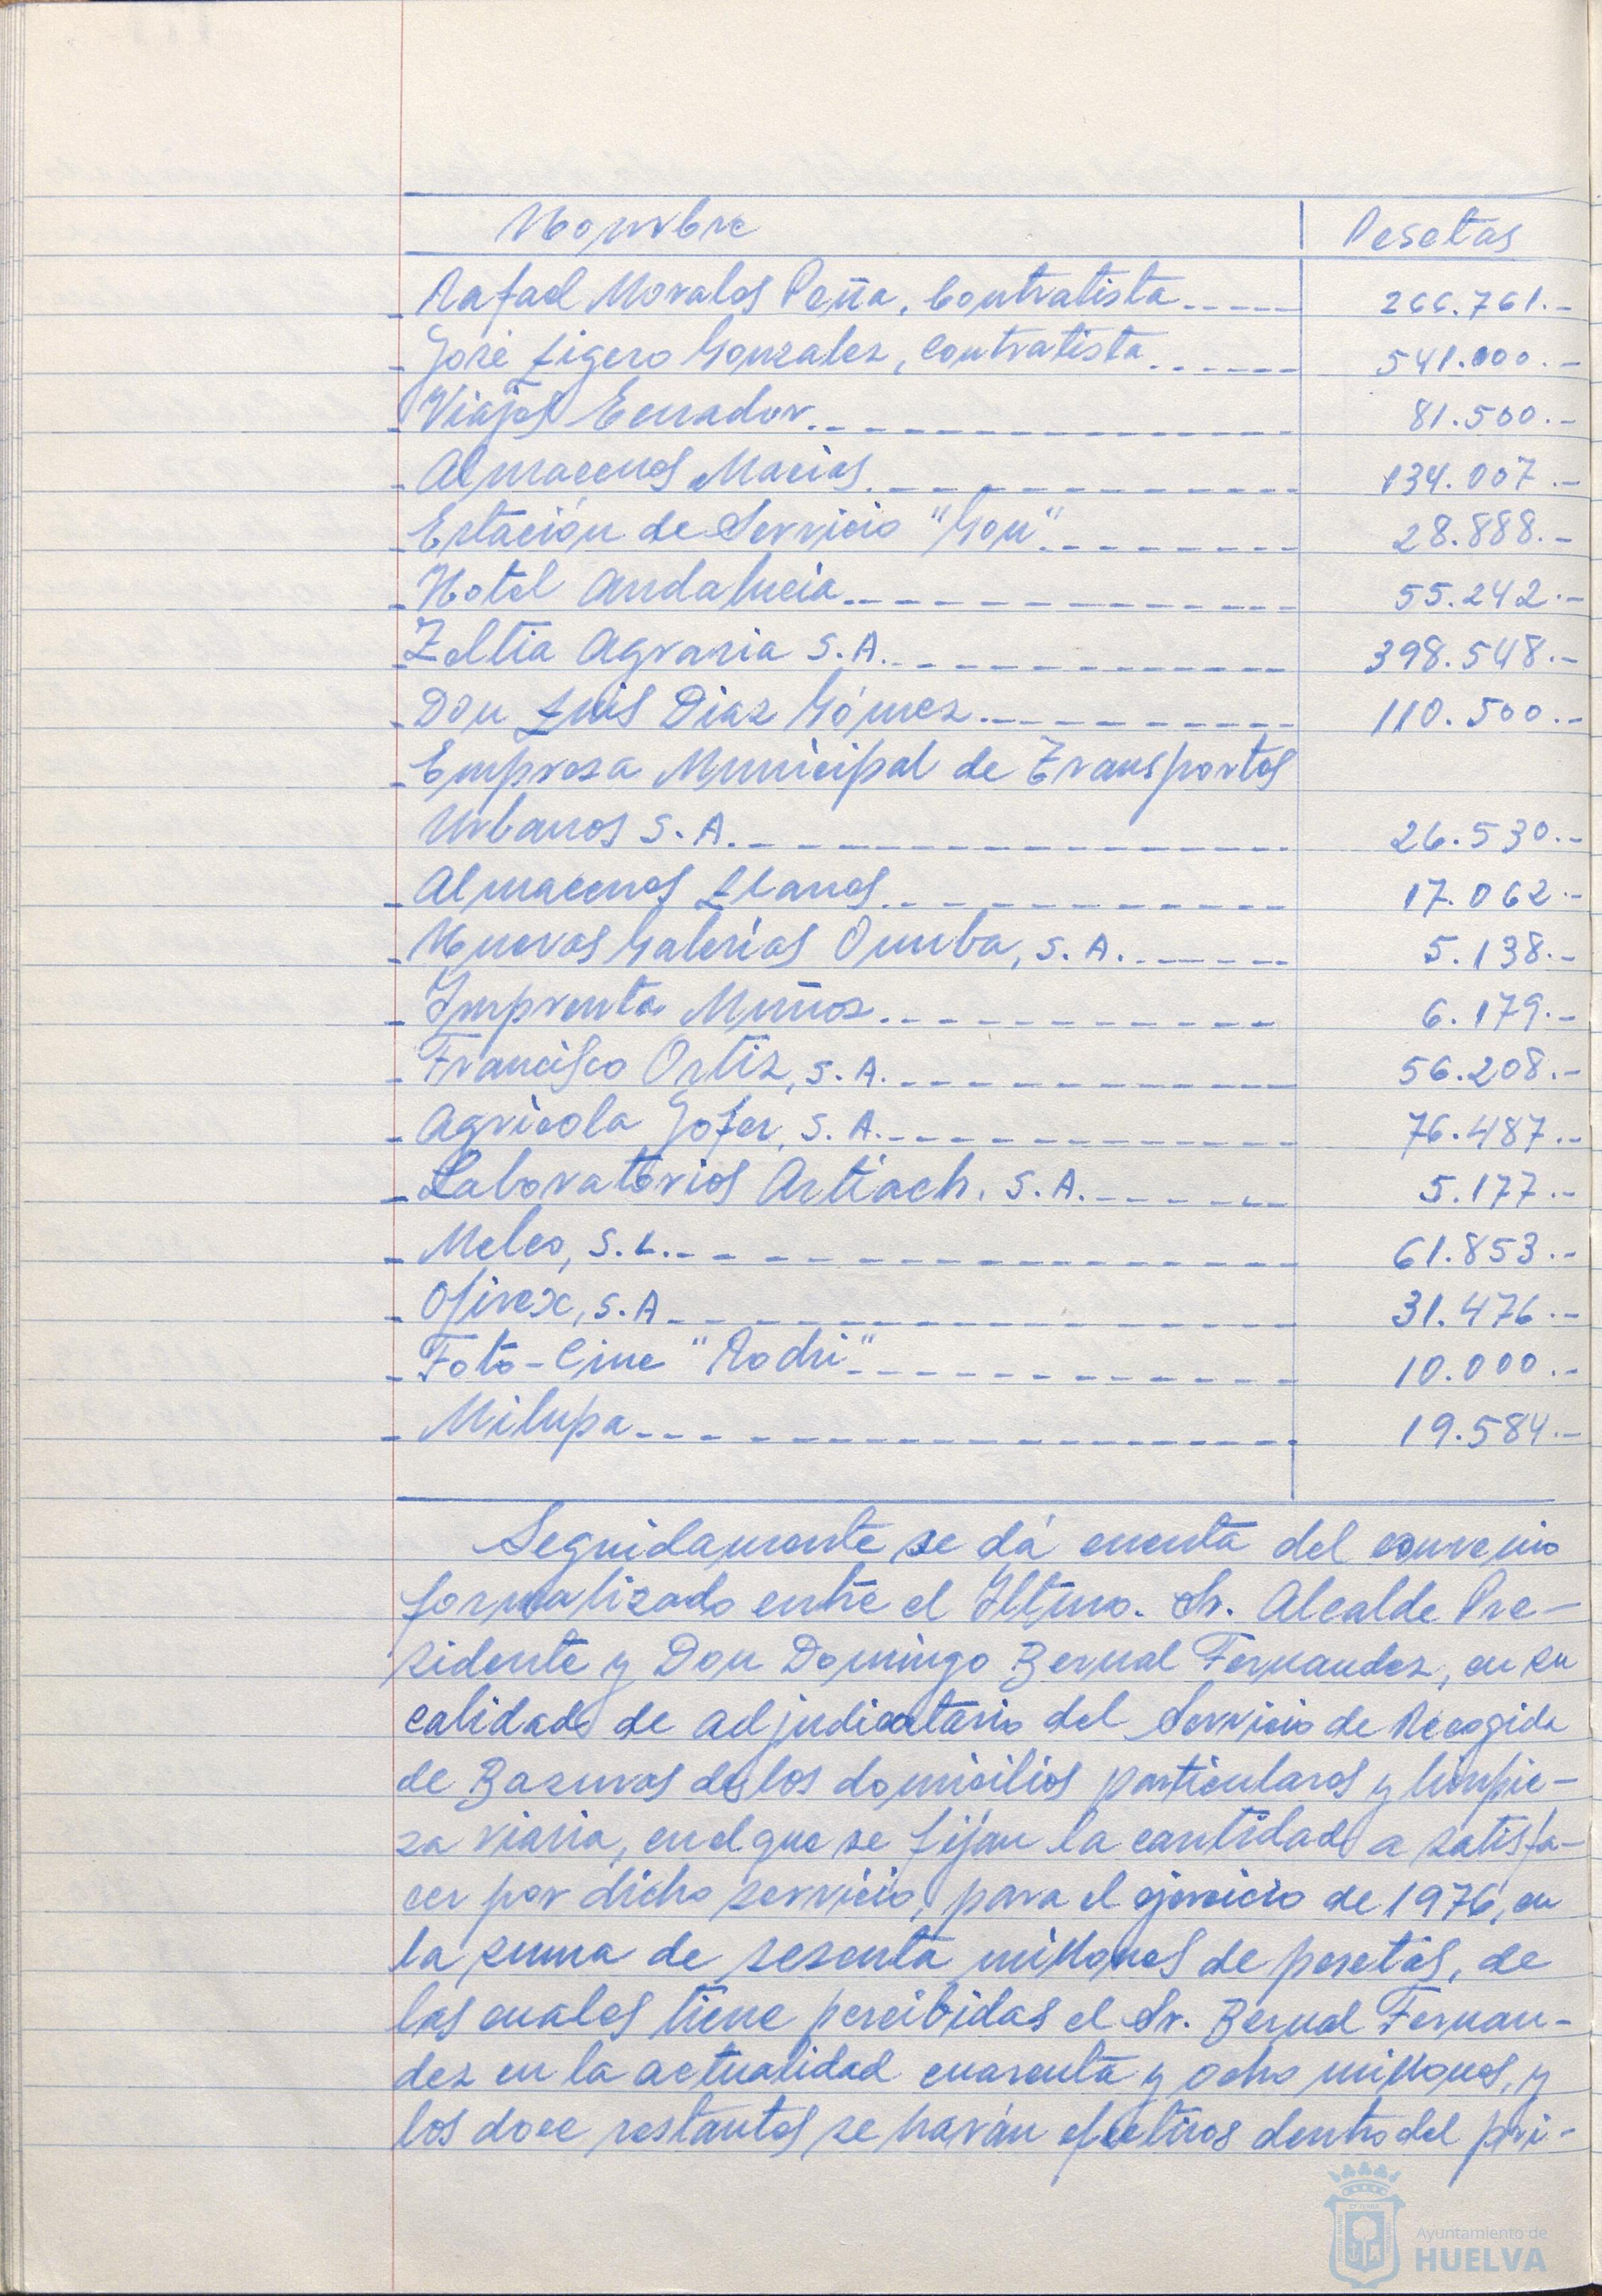 Nombre Pesetas
Rafael Morales Peña, Contratista 266.761.-
José Ligero Gonzalez, Contratista 541.000.-
Viajes Ecuador 81.500.-
Almacenes Macias 134.007.-
Estación de Servicio "Gon" 28.888.-
Hotel Andalucia 55.242.-
Zeltia Agraria S.A. 398.548.-
Don Luis Diaz Gómez 110.500.-
Empresa Municipal de Transportes
Urbanos S.A. 26.530.-
Almacenes Llanes 17.062.-
Nuevas Galerías Onuba, S.A. 5.138.-
Imprenta Muñoz 6.179.-
Francisco Ortiz, S.A. 56.208.-
Agricola Gofer, S.A. 76.487.-
Laboratorios Artiach, S.A. 5.177.-
Meleo, S.L. 61.853.-
Ofirex, S.A 31.476.-
Foto-Cine "Rodri" 10.000.-
Milupa 19.584.-
Seguidamente se dá cuenta del convenio
formalizado entre el Iltmo. Sr. Alcalde Pre-
sidente y Don Domingo Bernal Fernandez, en su
calidad de adjudicatario del Servicio de Recogida
de Basuras de los domicilios particulares y limpie-
za viaria, en el que se fijan la cantidad a satisfa-
cer por dicho servicio, para el ejercicio de 1976, en
la suma de sesenta millones de pesetas, de
las cuales tiene percibidas el Sr. Bernal Fernan-
dez en la actualidad cuarenta y ocho millones, y
los doce restantes se harán efectivos dentro del pri-
Ayuntamiento de
HUELVA